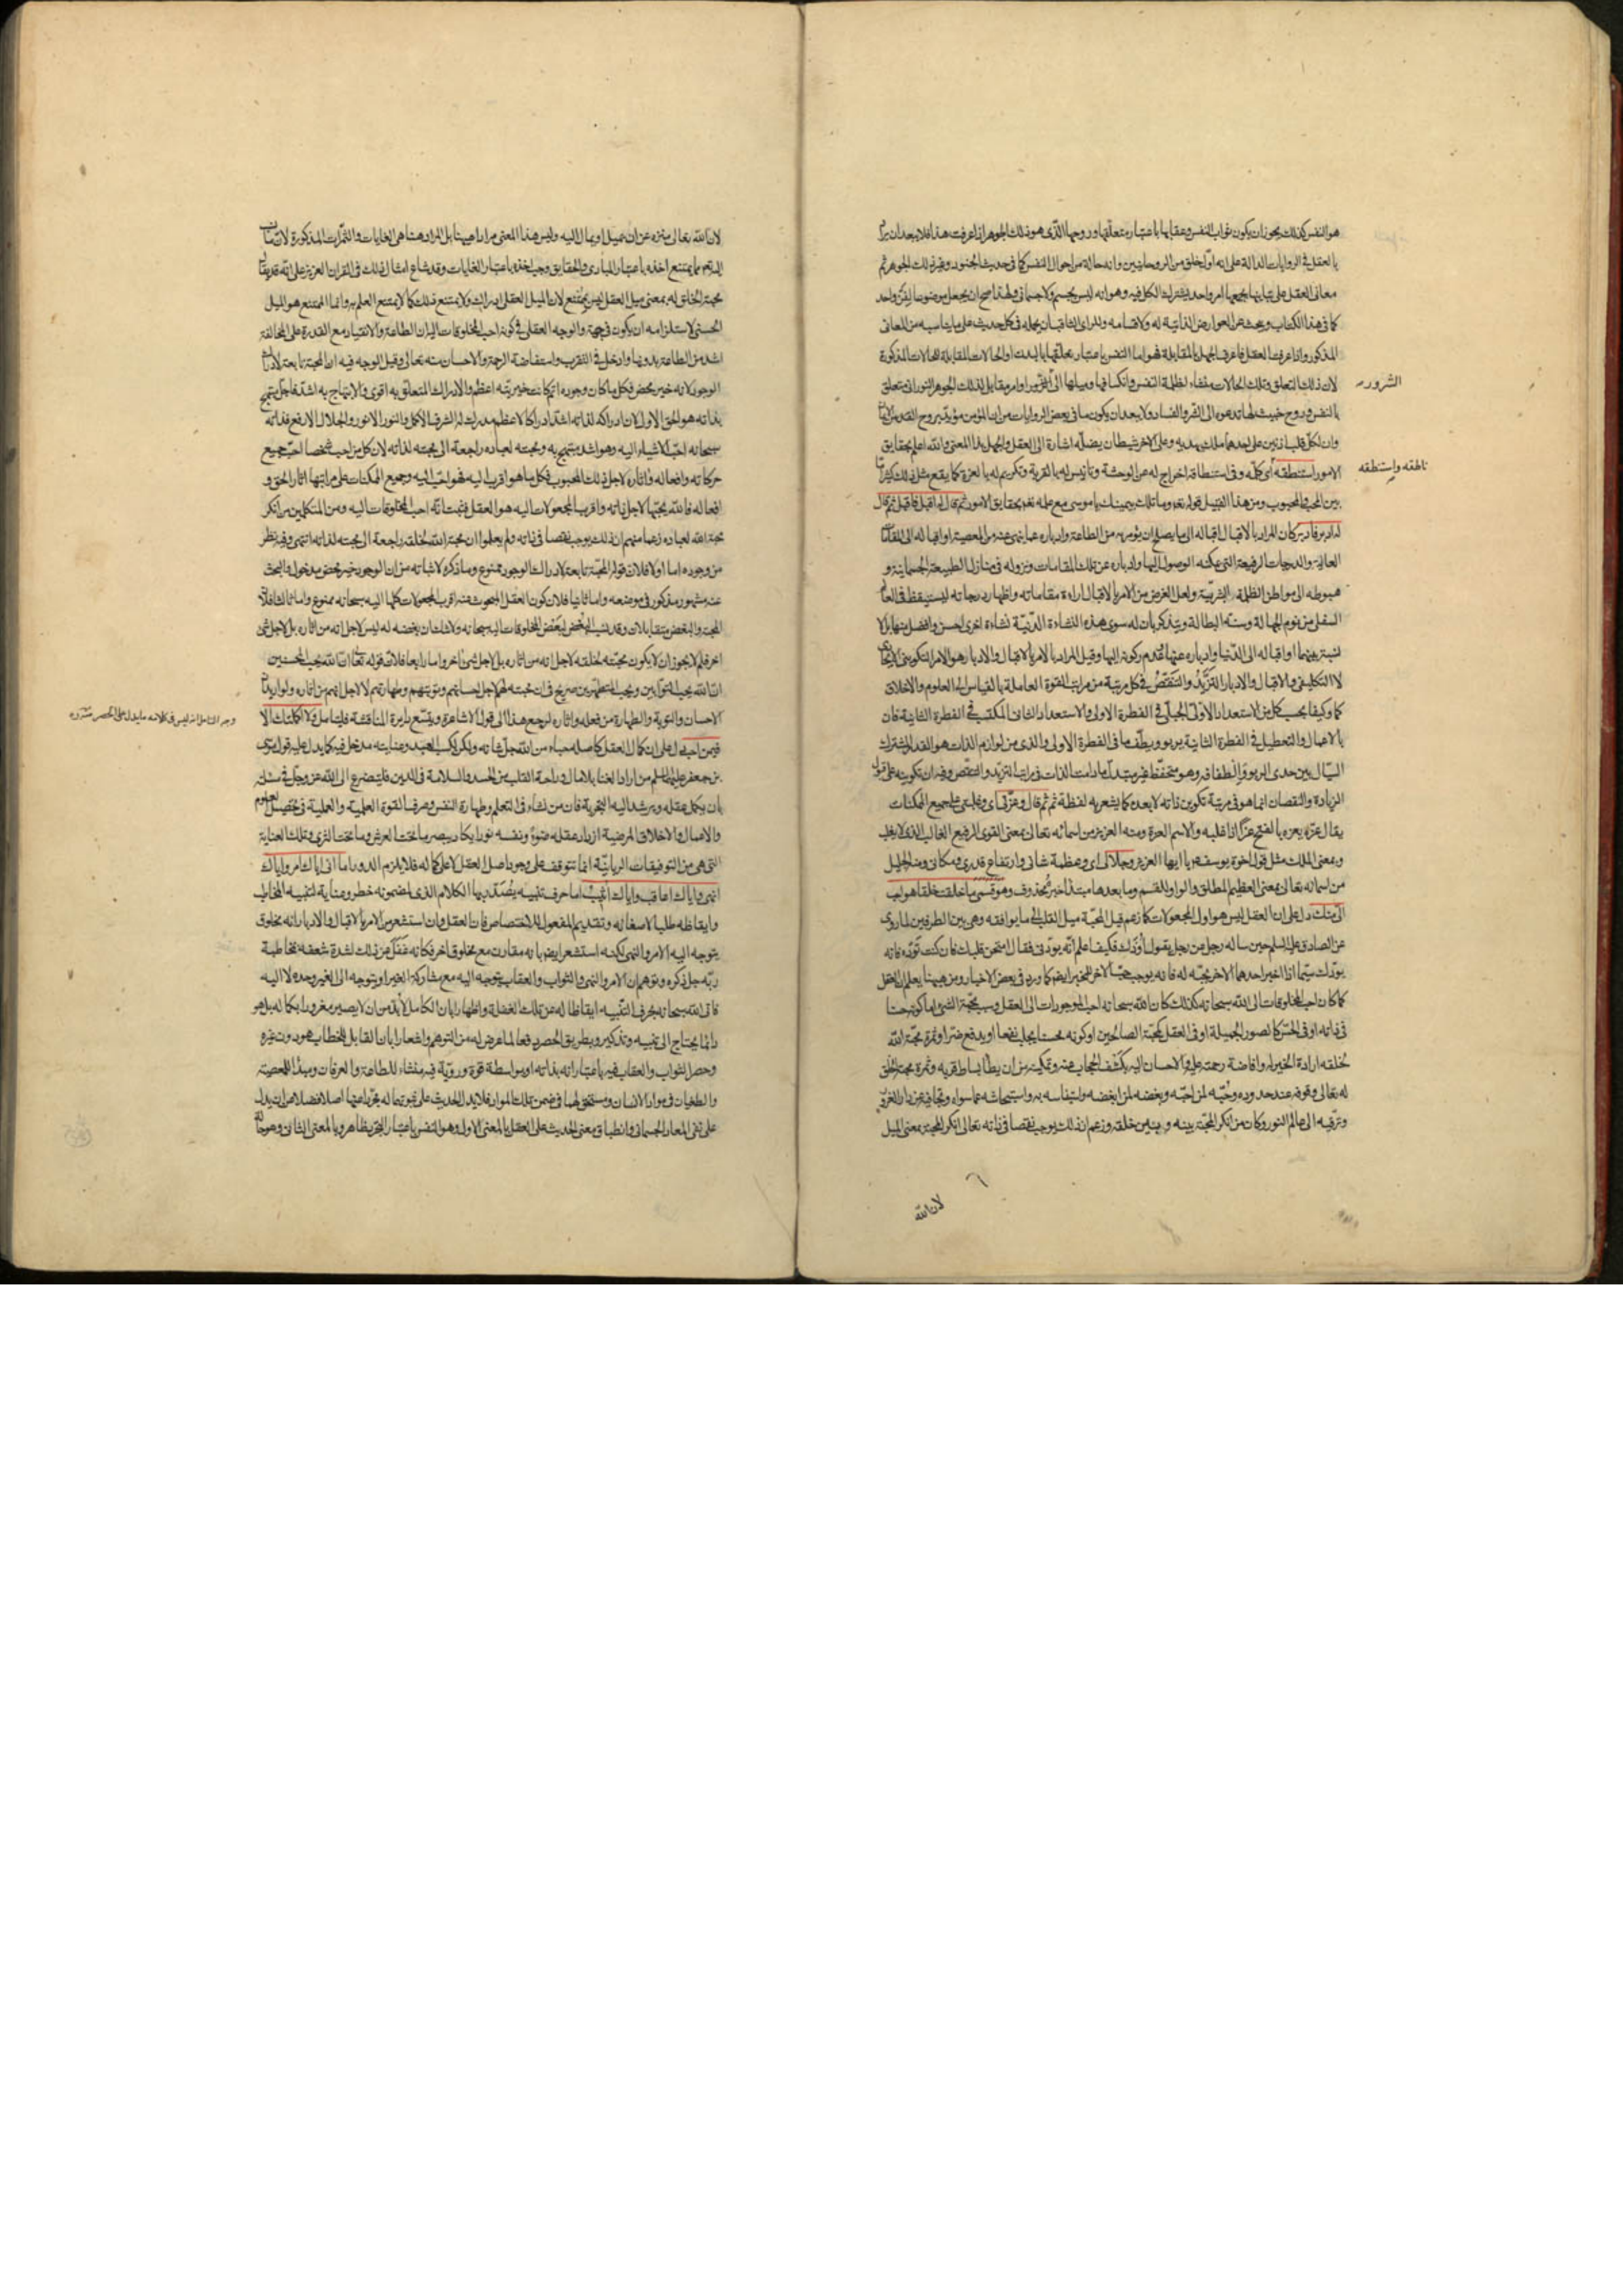 هو النفس كذلك يجوز ان يكون ثواب النفس وعقابها باعتبار متعلقها وروحها الذي هو ذلك الجوهر اذا عرفت هذا فلا يبعد ان يراد
بالعقل في الروايات الدالة على انه اول خلق من الروحانيين وانه حالة من احوال النفس كما في حديث الجنود وغير ذلك الجوهر ثم
معاني العقل على تباينها يجمعها امر واحد يشترك الكل فيه وهو انه ليس بجسم ولا جسماني ولهذا صح ان يجعل موضوعا لفن واحد
كما في هذا الكتاب ويبحث عن العوارض الذاتية له ولاقسامه وللراي الثاقب ان يحمله في كل حديث على ما يناسبه من المعاني
المذكورة واذا عرفت العقل فاعرف الجهل بالمقابلة فهو اما النفس باعتبار تعلقها بالبدن او الحالات المقابلة للحالات المذكورة
لان ذلك التعلق وتلك الحالات منشاء لظلمة النفس وانكسافها وميلها الى الشرور او امر مقابل لذلك الجوهر النوراني متعلق
الشرور
بالنفس وروح خبيث لها تدعوه الى الشر والفساد ولا يبعد ان يكون ما في بعض الروايات من ان المؤمن مؤيد بروح القدس
وان لكل قلب اذنين على احدهما ملك يهديه وعلى الاخر شيطان يضله اشارة الى العقل والجهل بهذا المعنى والله اعلم بحقايق
الامور استنطقه اي كلمه وفي استنطاقه اخراج له عن الوحشة وتانيس له بالقربة وتكريم له بالعزة كما يقع مثل ذلك كثيرا
ناطقه واستنطقه
بين المحب والمحبوب ومن هذا القبيل قوله تعالى وما تلك بيمينك يا موسى مع علمه تعالى بحقايق الامور ثم قال له اقبل فاقبل ثم قال
له ادبر فادبر كان المراد بالاقبال اقباله الى ما يصلح ان يؤمر به من الطاعة وادباره عما ينهى عنه من المعصية او اقباله الى المقامات
العالية والدرجات الرفيعة التي يمكنه الوصول اليها وادباره عن تلك المقامات ونزوله في منازل الطبيعة الجسمانية و
هبوطه الى مواطن الظلمة البشرية ولعل الغرض من الامر بالاقبال اراءة مقاماته واظهار درجاته ليستيقظ في العالم
السفلي من نوم الجهالة وسنة البطالة ويتذكر بان له سوى هذه النشاءة الدنية نشاءة اخرى احسن وافضل منها بلا
نسبة بينهما او اقباله الى الدنيا وادباره عنها لعدم ركونه اليها وقيل المراد بالامر بالاقبال والادبار هو الامر التكويني الايجادي
لا التكليفي والاقبال والادبار التزيد والتنقص في كل مرتبة من مراتب القوة العاملة بالقياس الى العلوم والاخلاق
كما وكيفا بحسب كل من الاستعداد الاولي الجبلي في الفطرة الاولى والاستعداد الثاني المكتسب في الفطرة الثانية فان
بالاعمال والتعطيل في الفطرة الثانية يربو ويطف ما في الفطرة الاولى والذي من لوازم الذات هو القدر المشترك
السيال بين حدي الربو والطفافة وهو متحفظ غير متبدل ما دامت الذات في مراتب التزيد والتنقص وفيه ان تكوينه على قبول
الزيادة والنقصان انما هو في مرتبة تكوين ذاته لا بعده كما يشعر به لفظة ثم ثم قال وعزتي اي وغلبتي على جميع الممكنات
يقال عزه يعزه بالفتح عزا اذا غلبه والاسم العزة ومنه العزيز من اسمائه تعالى بمعنى القوي الرفيع الغالب الذي لا يغلب
وبمعنى الملك مثل قول اخوة يوسف يا ايها العزيز وجلالي اي وعظمة شاني وارتفاع قدري ومكاني ومنه الجليل
من اسمائه تعالى بمعنى العظيم المطلق والواو للقسم وما بعدها مبتدا خبره محذوف وهو قسمي ما خلقت خلقا هو احب
الي منك دل على ان العقل ليس هو اول المجعولات كما زعم قيل المحبة ميل القلب الى ما يوافقه وهي بين الطرفين لما روي
عن الصادق عليه السلم حين ساله رجل عن رجل يقول اودك فكيف اعلم انه يودني فقال امتحن قلبك فان كنت توده فانه
يودك سيما اذا اخبر احدهما الاخر بحبه له فانه يوجب حب الاخر للمخبر ايضا كما ورد في بعض الاخبار ومن هيهنا يعلم ان العقل
كما كان احب المخلوقات الى الله سبحانه كذلك كان الله سبحانه احب الموجودات الى العقل وسبب محبة الشيء اما كونه حسنا
في ذاته او في الحس كالصور الجميلة او في العقل كمحبة الصالحين او كونه محسنا يجلب نفعا او يدفع ضرا وثمرة محبة الله
لخلقه ارادة الخير له وافاضة رحمته عليه والاحسان اليه بكشف الحجاب عنه وتمكينه من ان يطا بساط قربه وثمرة محبة الخلق
له تعالى وقوفه عند حدوده وحبه لمن احبه وبغضه لمن ابغضه واستيناسه به واستيحاشه عما سواه وتجافيه عن دار الغرور
وترقيه الى عالم النور وكان من انكر المحبة بينه وبين خلقه وزعم ان ذلك يوجب نقصا في ذاته تعالى انكر المحبة بمعنى الميل
لان الله
لان الله تعالى منزه عن ان يميل او يمال اليه وليس هذا المعنى مرادا هيهنا بل المراد هنا هي الغايات والثمرات المذكورة لان
ما يمتنع اخذه باعتبار المبادي والحقايق وجب اخذه باعتبار الغايات وقد شاع امثال ذلك في القران العزيز على انه قد يقال
محبة الخلق له بمعنى ميل العقل ليس بممتنع لان الميل العقلي ادراك ولا يمتنع ذلك كما لا يمتنع العلم به وانما الممتنع هو الميل
الحسي لاستلزامه ان يكون في جهة والوجه العقلي في كونه احب المخلوقات اليه ان الطاعة والانقياد مع القدرة على المخالفة
اشد من الطاعة بدونها وادخل في التقرب واستفاضة الرحمة والاحسان منه تعالى وقيل الوجه فيه ان المحبة تابعة لادراك
الوجود لانه خير محض فكل ما كان وجوده اتم كانت خيريته اعظم والادراك المتعلق به اقوى والابتهاج به اشد فاجل مبتهج
بذاته هو الحق الاول لان ادراكه لذاته اشد ادراكا لاعظم مدرك له الشرف الاكمل والنور الانور والجلال الارفع فذاته
سبحانه احب الاشياء اليه وهو اشد مبتهج به ومحبته لعباده راجعة الى محبته لذاته لان كل من احب شخصا احب جميع
حركاته وافعاله واثاره لاجل ذلك المحبوب فكل ما هو اقرب اليه فهو احب اليه وجميع الممكنات على مراتبها اثار الحق و
افعاله فالله يحبها لاجل ذاته واقرب المجعولات اليه هو العقل فثبت انه احب المخلوقات اليه ومن المتكلمين من انكر
محبة الله لعباده زعما منهم ان ذلك يوجب نقصا في ذاته ولم يعلموا ان محبة الله لخلقه راجعة الى محبته لذاته انتهى وفيه نظر
من وجوه اما اولا فلان قوله المحبة تابعة لادراك الوجود ممنوع وما ذكره لاثباته من ان الوجود خير محض مدخول والبحث
عنه مشهور مذكور في موضعه واما ثانيا فلان كون العقل المبعوث عنه اقرب المجعولات كلها اليه سبحانه ممنوع واما ثالثا فلان
المحبة والبغض متقابلان وقد نسب البغض لبعض المخلوقات اليه سبحانه ولا شك ان بغضه له ليس لاجل انه من اثاره بل لاجل شيء
اخر فلم لا يجوز ان لا يكون محبته لخلقه لاجل انه من اثاره بل لاجل شيء اخر واما رابعا فلان قوله تعالى ان الله يحب المحسنين
ان الله يحب التوابين ويحب المتطهرين صريح في ان محبته لهم لاجل احسانهم وتوبتهم وطهارتهم لا لاجل انهم من اثاره ولو اريد ان
الاحسان والتوبة والطهارة من فعله واثاره لرجع هذا الى قول الاشاعرة ويتسع دايرة المناقشة فليتامل ولا اكملتك الا
وجه التامل انه ليس في كلامه ما يدل على الحصر منه
فيمن احب دل على ان كمال العقل كاصله مبداء من الله جل شانه ولكن لكسب العبد وعنايته مدخل فيه كما يدل عليه قول موسى
بن جعفر عليهما السلم من اراد الغنا بلا مال وراحة القلب من الحسد والسلامة في الدين فليتضرع الى الله عز وجل في مسئلته
بان يكمل عقله ويرشد اليه التجربة فان من نشاء في التعلم وطهارة النفس وصرف القوة العلمية والعملية في تحصيل العلوم
والاعمال والاخلاق المرضية ازداد عقله ضوءا ونفسه نورا يكاد يبصر ما تحت العرش وما تحت الثرى وتلك العناية
التي هي من التوفيقات الربانية انما تتوقف على وجود اصل العقل لا على كماله فلا يلزم الدور اما اني اياك امر واياك
انهى واياك اعاقب واياك اثيب اما حرف تنبيه يصدر بها الكلام الذي لمضمونه خطر وعناية لتنبيه المخاطب
وايقاظه طلبا لاصغائه وتقديم المفعول للاختصاص فان العقل وان استشعر من الامر بالاقبال والادبار انه مخلوق
يتوجه اليه الامر والنهي لكنه استشعر ايضا بانه مقارن مع مخلوق اخر فكانه غفل عن ذلك لشدة شعفه بمخاطبة
ربه جل ذكره وتوهم ان الامر والنهي والثواب والعقاب يتوجه اليه مع مشاركة الغير او يتوجه الى الغير وحده لا اليه
فاتى الله سبحانه بحرف التنبيه ايقاظا له عن تلك الغفلة واظهارا بان الكامل لا بد من ان لا يصير مغرورا بكماله بل هو
دائما يحتاج الى تنبيه وتذكير وبطريق الحصر دفعا لما عرض له من التوهم واشعارا بان القابل للخطاب هو دون غيره
وحصر الثواب والعقاب فيه باعتبار انه بذاته او بواسطة قوة وروية فيه منشاء للطاعة والعرفان ومبداء للمعصية
والطغيان في مواد الانسان ومستحق لهما في ضمن تلك المواد فلا يدل الحديث على ثبوتهما له مجردا عنها اصلا فضلا من ان يدل
على نفي المعاد الجسماني وانطباق معنى الحديث على العقل بالمعنى الاول وهو النفس باعتبار التجرد ظاهر وبالمعنى الثاني وهو حالة